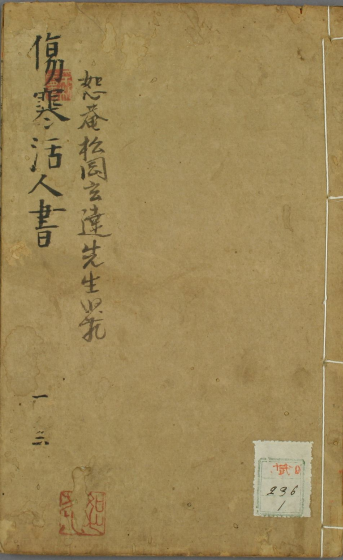 傷寒活人書
一 三
恕菴松岡玄達先生
236
1